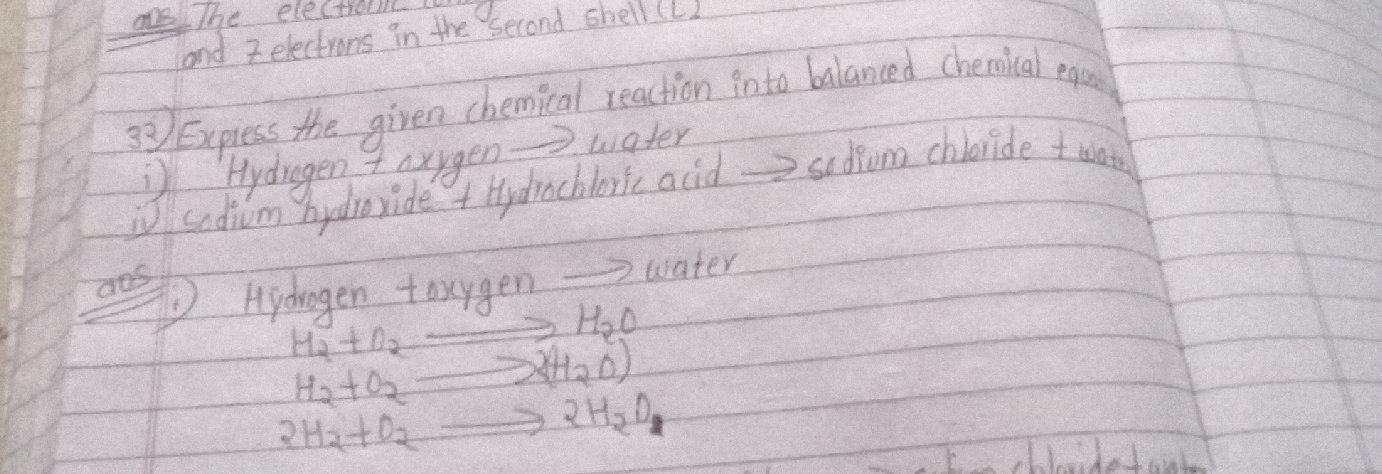 ans The electronic
and 7 electrons in the second shell (L)
33) Express the given chemical reaction into balanced chemical
i) Hydrogen + oxygen → water
ii) sodium hydroxide + Hydrochloric acid → sodium chloride + water
ans i) Hydrogen + oxygen → water
H₂ + O₂ → H₂O
H₂ + O₂ → 2(H₂O)
2H₂ + O₂ → 2H₂O
chloride +